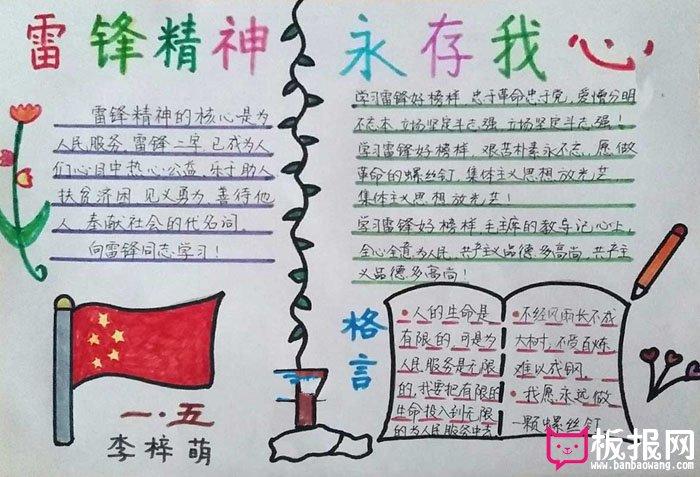 雷锋精神 永存我心
雷锋精神的核心是为
人民服务，雷锋二字，已成为人
们心目中热心公益，乐于助人
扶贫济困，见义勇为，善待他
人，奉献社会的代名词。
向雷锋同志学习！
学习雷锋好榜样，忠于革命忠于党，爱憎分明
不忘本，立场坚定斗志强，立场坚定斗志强！
学习雷锋好榜样，艰苦朴素永不忘，愿做
革命的螺丝钉，集体主义思想放光芒，
集体主义思想放光芒！
学习雷锋好榜样，毛主席的教导记心上，
全心全意为人民，共产主义品德多高尚，共产主
义品德多高尚！
格言
人的生命是
有限的，可是为
人民服务是无限
的，我要把有限的
生命投入到无限
的为人民服务中去
不经风雨长不成
大树，不受百炼
难以成钢，
我愿永远做
一颗螺丝钉
一·五
李梓萌
板报网
www.banbaowang.com